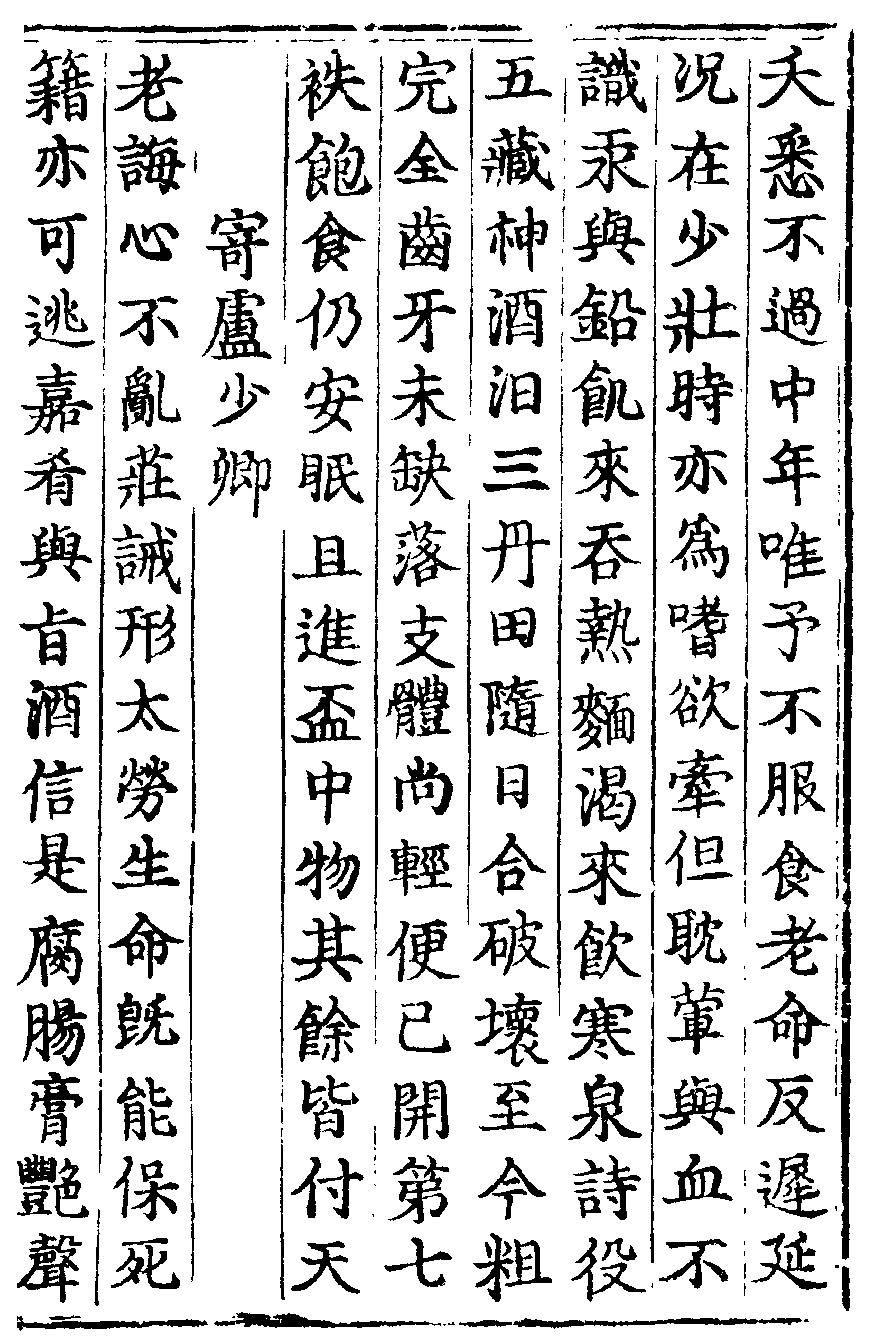 夭悉不過中年唯予不服食老命反遲延
况在少壯時亦爲嗜欲牽但耽葷與血不
識汞與鉛飢來吞熱麵渴來飮寒泉詩役
五藏神酒汨三丹田隨日合破壞至今粗
完全齒牙未缺落支體尚輕便已開第七
袟飽食仍安眠且進盃中物其餘皆付天
寄盧少卿
老誨心不亂莊誡形太勞生命旣能保死
籍亦可逃嘉肴與旨酒信是腐腸膏豔聲